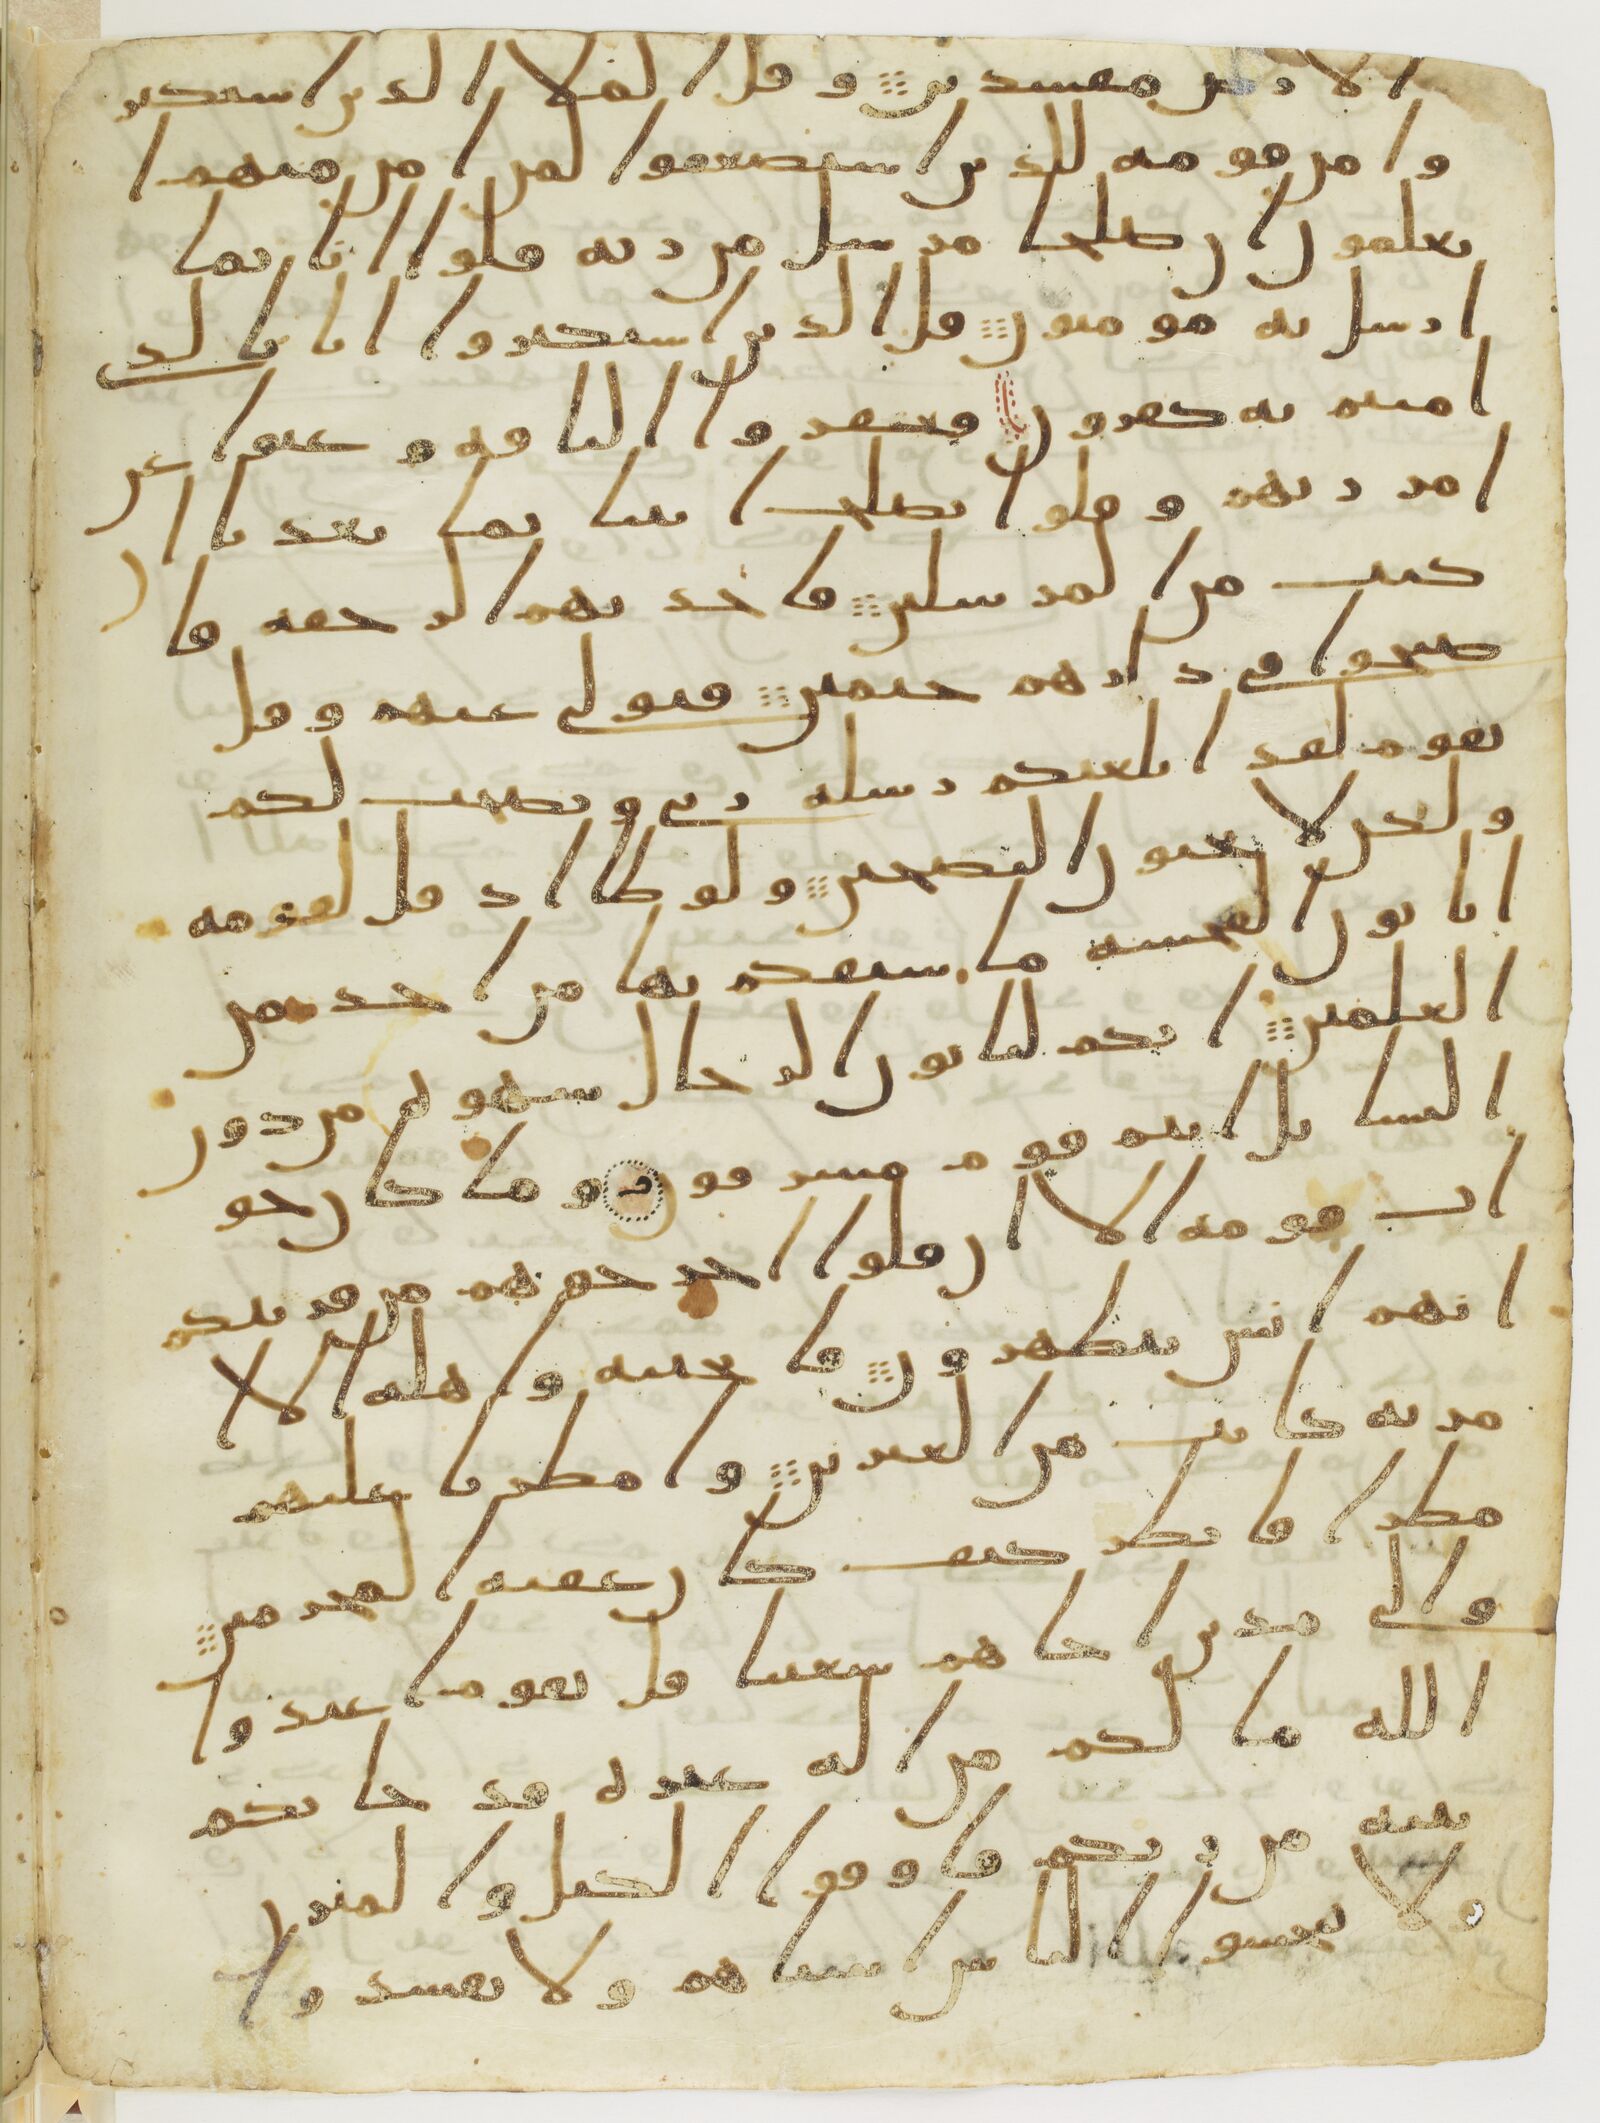 الارض مفسدين وقل الملا الذين استكبر
وا من قومه للذين استضعفوا لمن امن منهم ا
تعلمون ان صلحا مرسل من ربه قلوا انا بما
ارسل به مومنون قل الذين استكبروا انا بالذي
امنتم به كفرون فعقروا الناقه وعتوا عن
امر ربهم وقلوا يصلح ا تنا بما تعدنا ان
كنت من المرسلين فاخذتهم الرجفه فا
صبحوا في دارهم جثمين فتولى عنهم وقل
يقوم لقد ابلغتكم رسله ربي ونصحت لكم
ولكن لا تحبون النصحين ولوطا اذ قل لقومه
اتاتون الفحشه ما سبقكم بها من احد من
العلمين انكم لتاتون الرجال شهوه من دون
النسا بل انتم قوم مسرفون وما كان جو
اب قومه الا ان قلوا اخرجوهم من قريتكم
انهم انس يتطهرون فانجينه واهله الا ا
مرته كانت من الغبرين وامطرنا عليهم
مطرا فانظر كيف كان عقبه المجرمين
والى مدين اخاهم شعيبا قل يقوم اعبدوا
الله ما لكم من اله غيره قد جاتكم
بينه من ربكم فاوفوا الكيل والميزن
ولا تبخسوا الناس اشياهم ولا تفسدوا